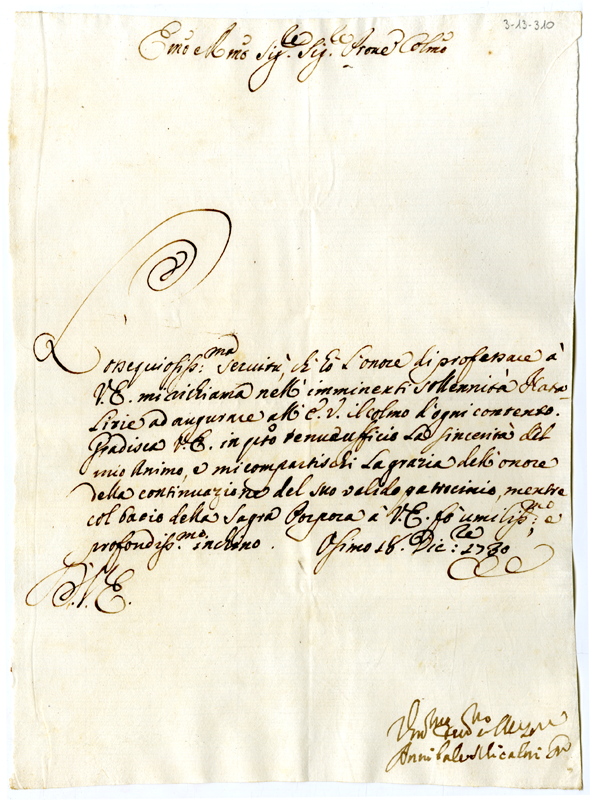 3-13-310
Emō e Rmō Sig.re Sig.re Prone Colmō
L'ossequiosiss:ma servitù, ch'ho l'onore di professare à
V.E. mi richiama nell'imminenti Sollennità Nata-
lizie ad augurare all'E.V. il colmo d'ogni contento.
Gradisca V.E. in qsto tenue ufficio la sincerità del
mio Animo, e mi compartischi la grazia dell'onore
della continuazione del suo valido patrocinio, mentre
col bacio della Sagra Porpora à V.E. fò umiliss:mo e
profondiss:mo inchino. Osimo 18. Dic:re 1730
D.V.E.
Annibale